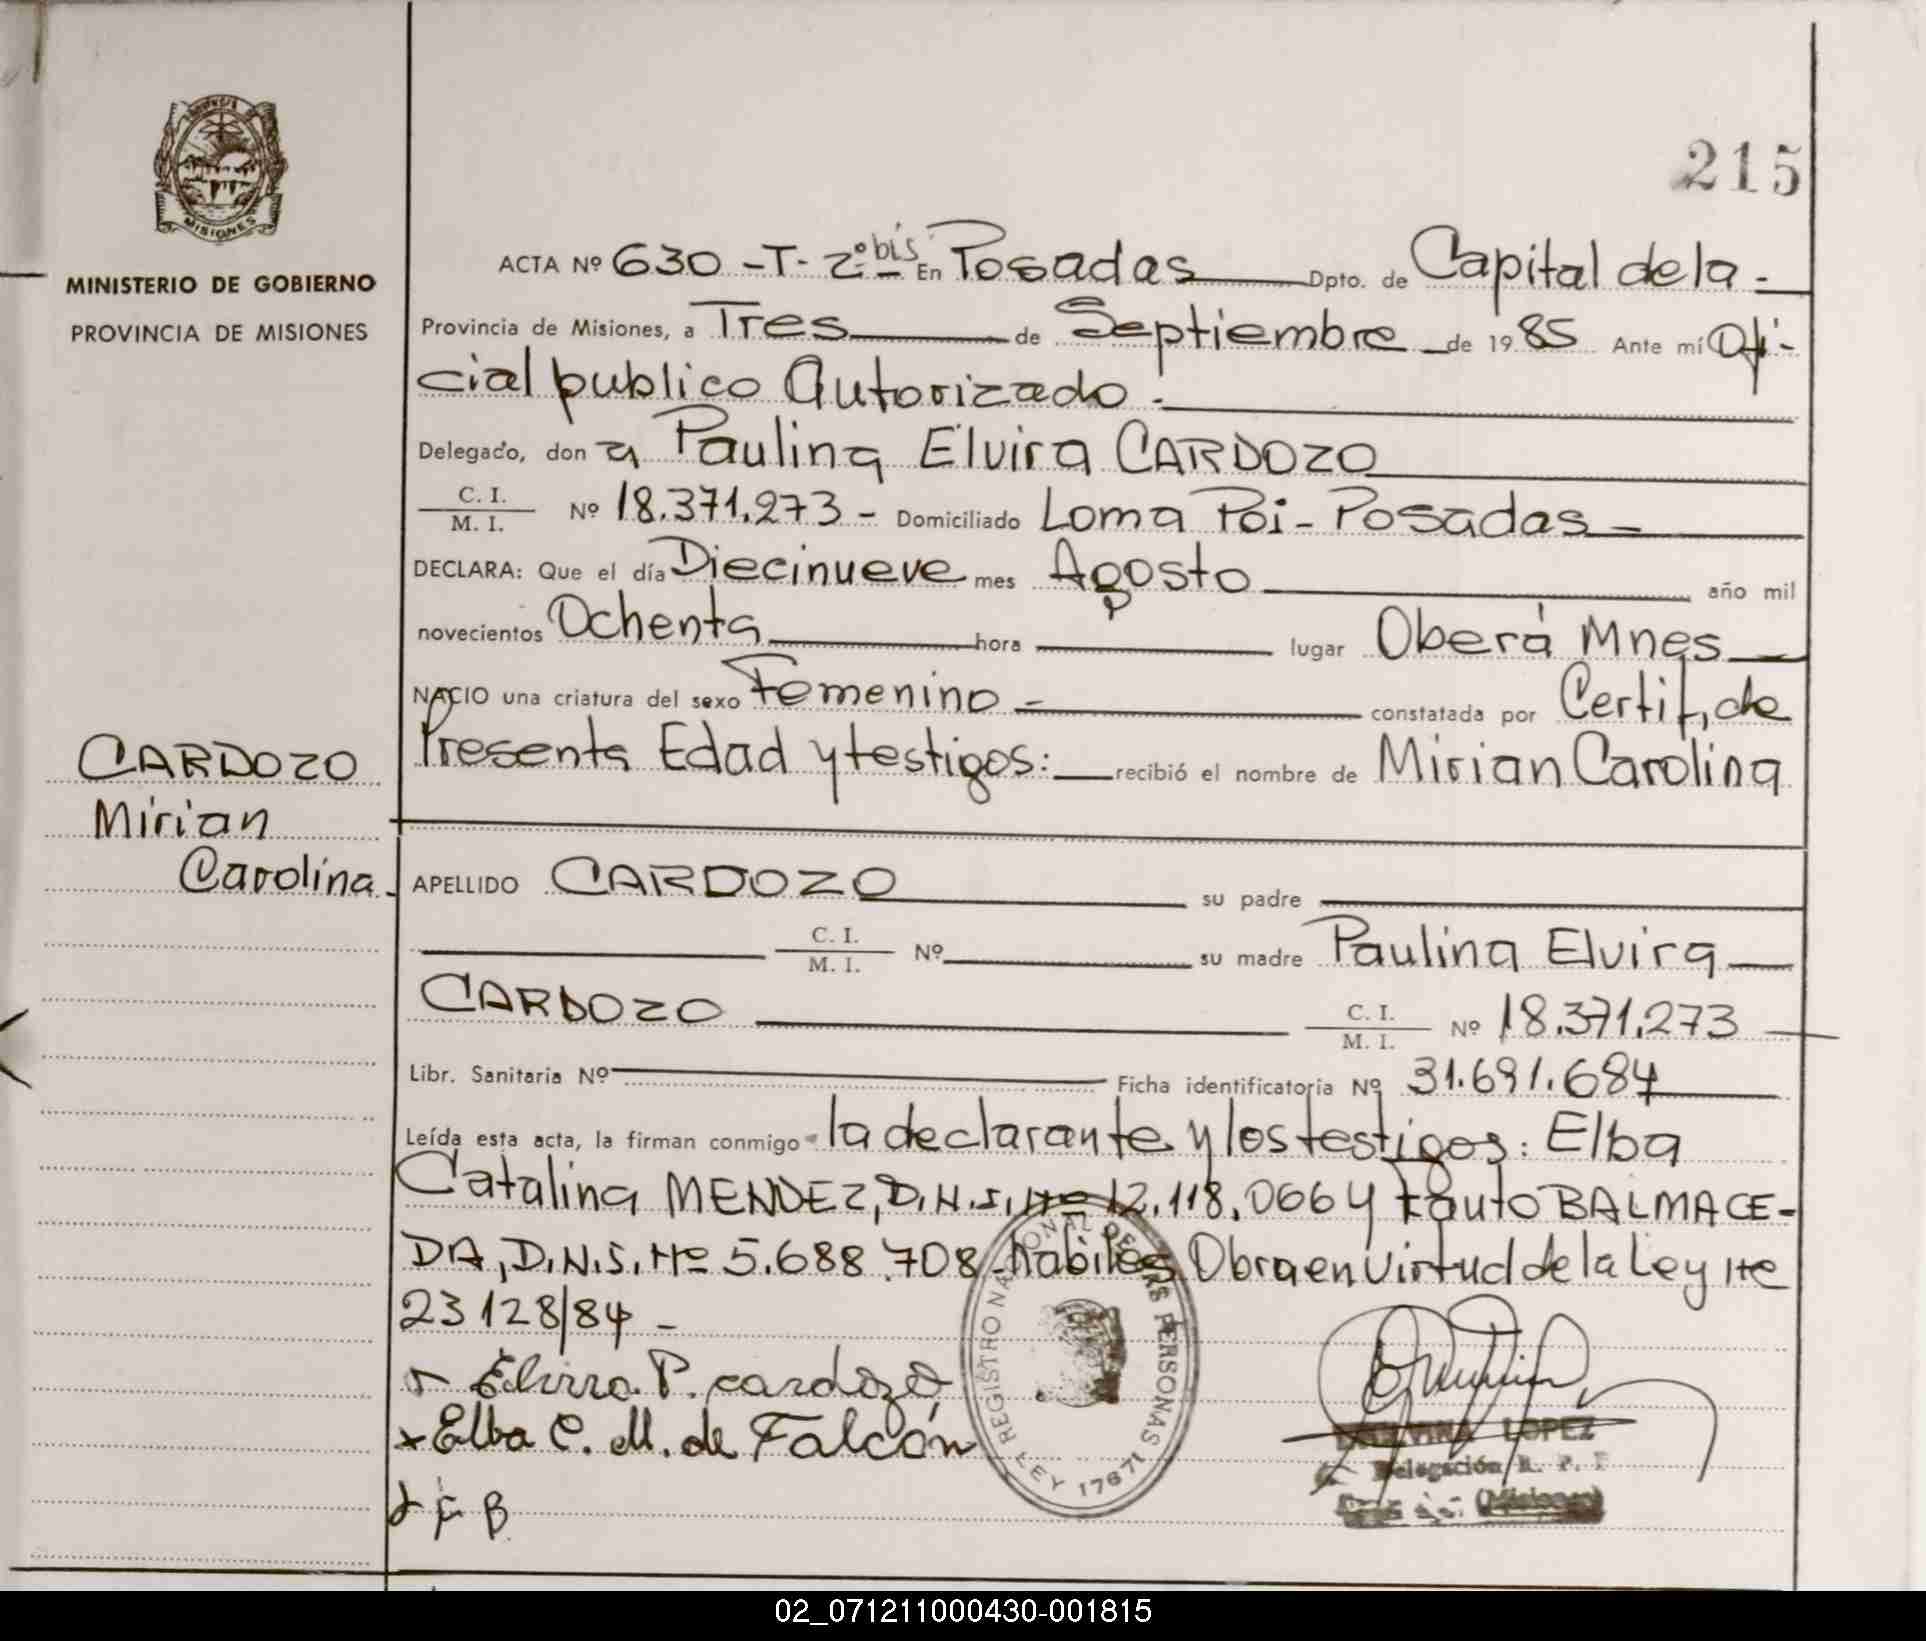 215
MISIONES
MINISTERIO DE GOBIERNO
PROVINCIA DE MISIONES
ACTA Nº 630 -T- 2º bis En Posadas Dpto. de Capital de la -
Provincia de Misiones, a Tres de Septiembre de 1985 Ante mí Ofi-
cial publico Autorizado -
Delegado, don a Paulina Elvira CARDOZO
C. I.
M. I. Nº 18.371.273 - Domiciliado Loma Poi - Posadas -
DECLARA: Que el día Diecinueve mes Agosto año mil
novecientos Ochenta hora lugar Oberá Mnes
NACIO una criatura del sexo Femenino - constatada por Certif, de
Presenta Edad y testigos: recibió el nombre de Mirian Carolina
CARDOZO
Mirian
Carolina
APELLIDO CARDOZO su padre
C. I.
M. I. Nº su madre Paulina Elvira
CARDOZO C. I.
M. I. Nº 18.371.273
Libr. Sanitaria Nº Ficha identificatoria Nº 31.691.684
Leída esta acta, la firman conmigo la declarante y los testigos: Elba
Catalina MENDEZ, D.N.I. Nº 12.118.066 y BALMACE-
DA, D.N.I. Nº 5.688.708 - habiles Obra en Virtud de la Ley Nº
23128/84 -
Elvira P. cardozo
x Elba C. M. de Falcón
F B
REGISTRO NACIONAL DE LAS PERSONAS
LEY 17671
LOPEZ
Delegación R. P.
(Misiones)
02_071211000430-001815